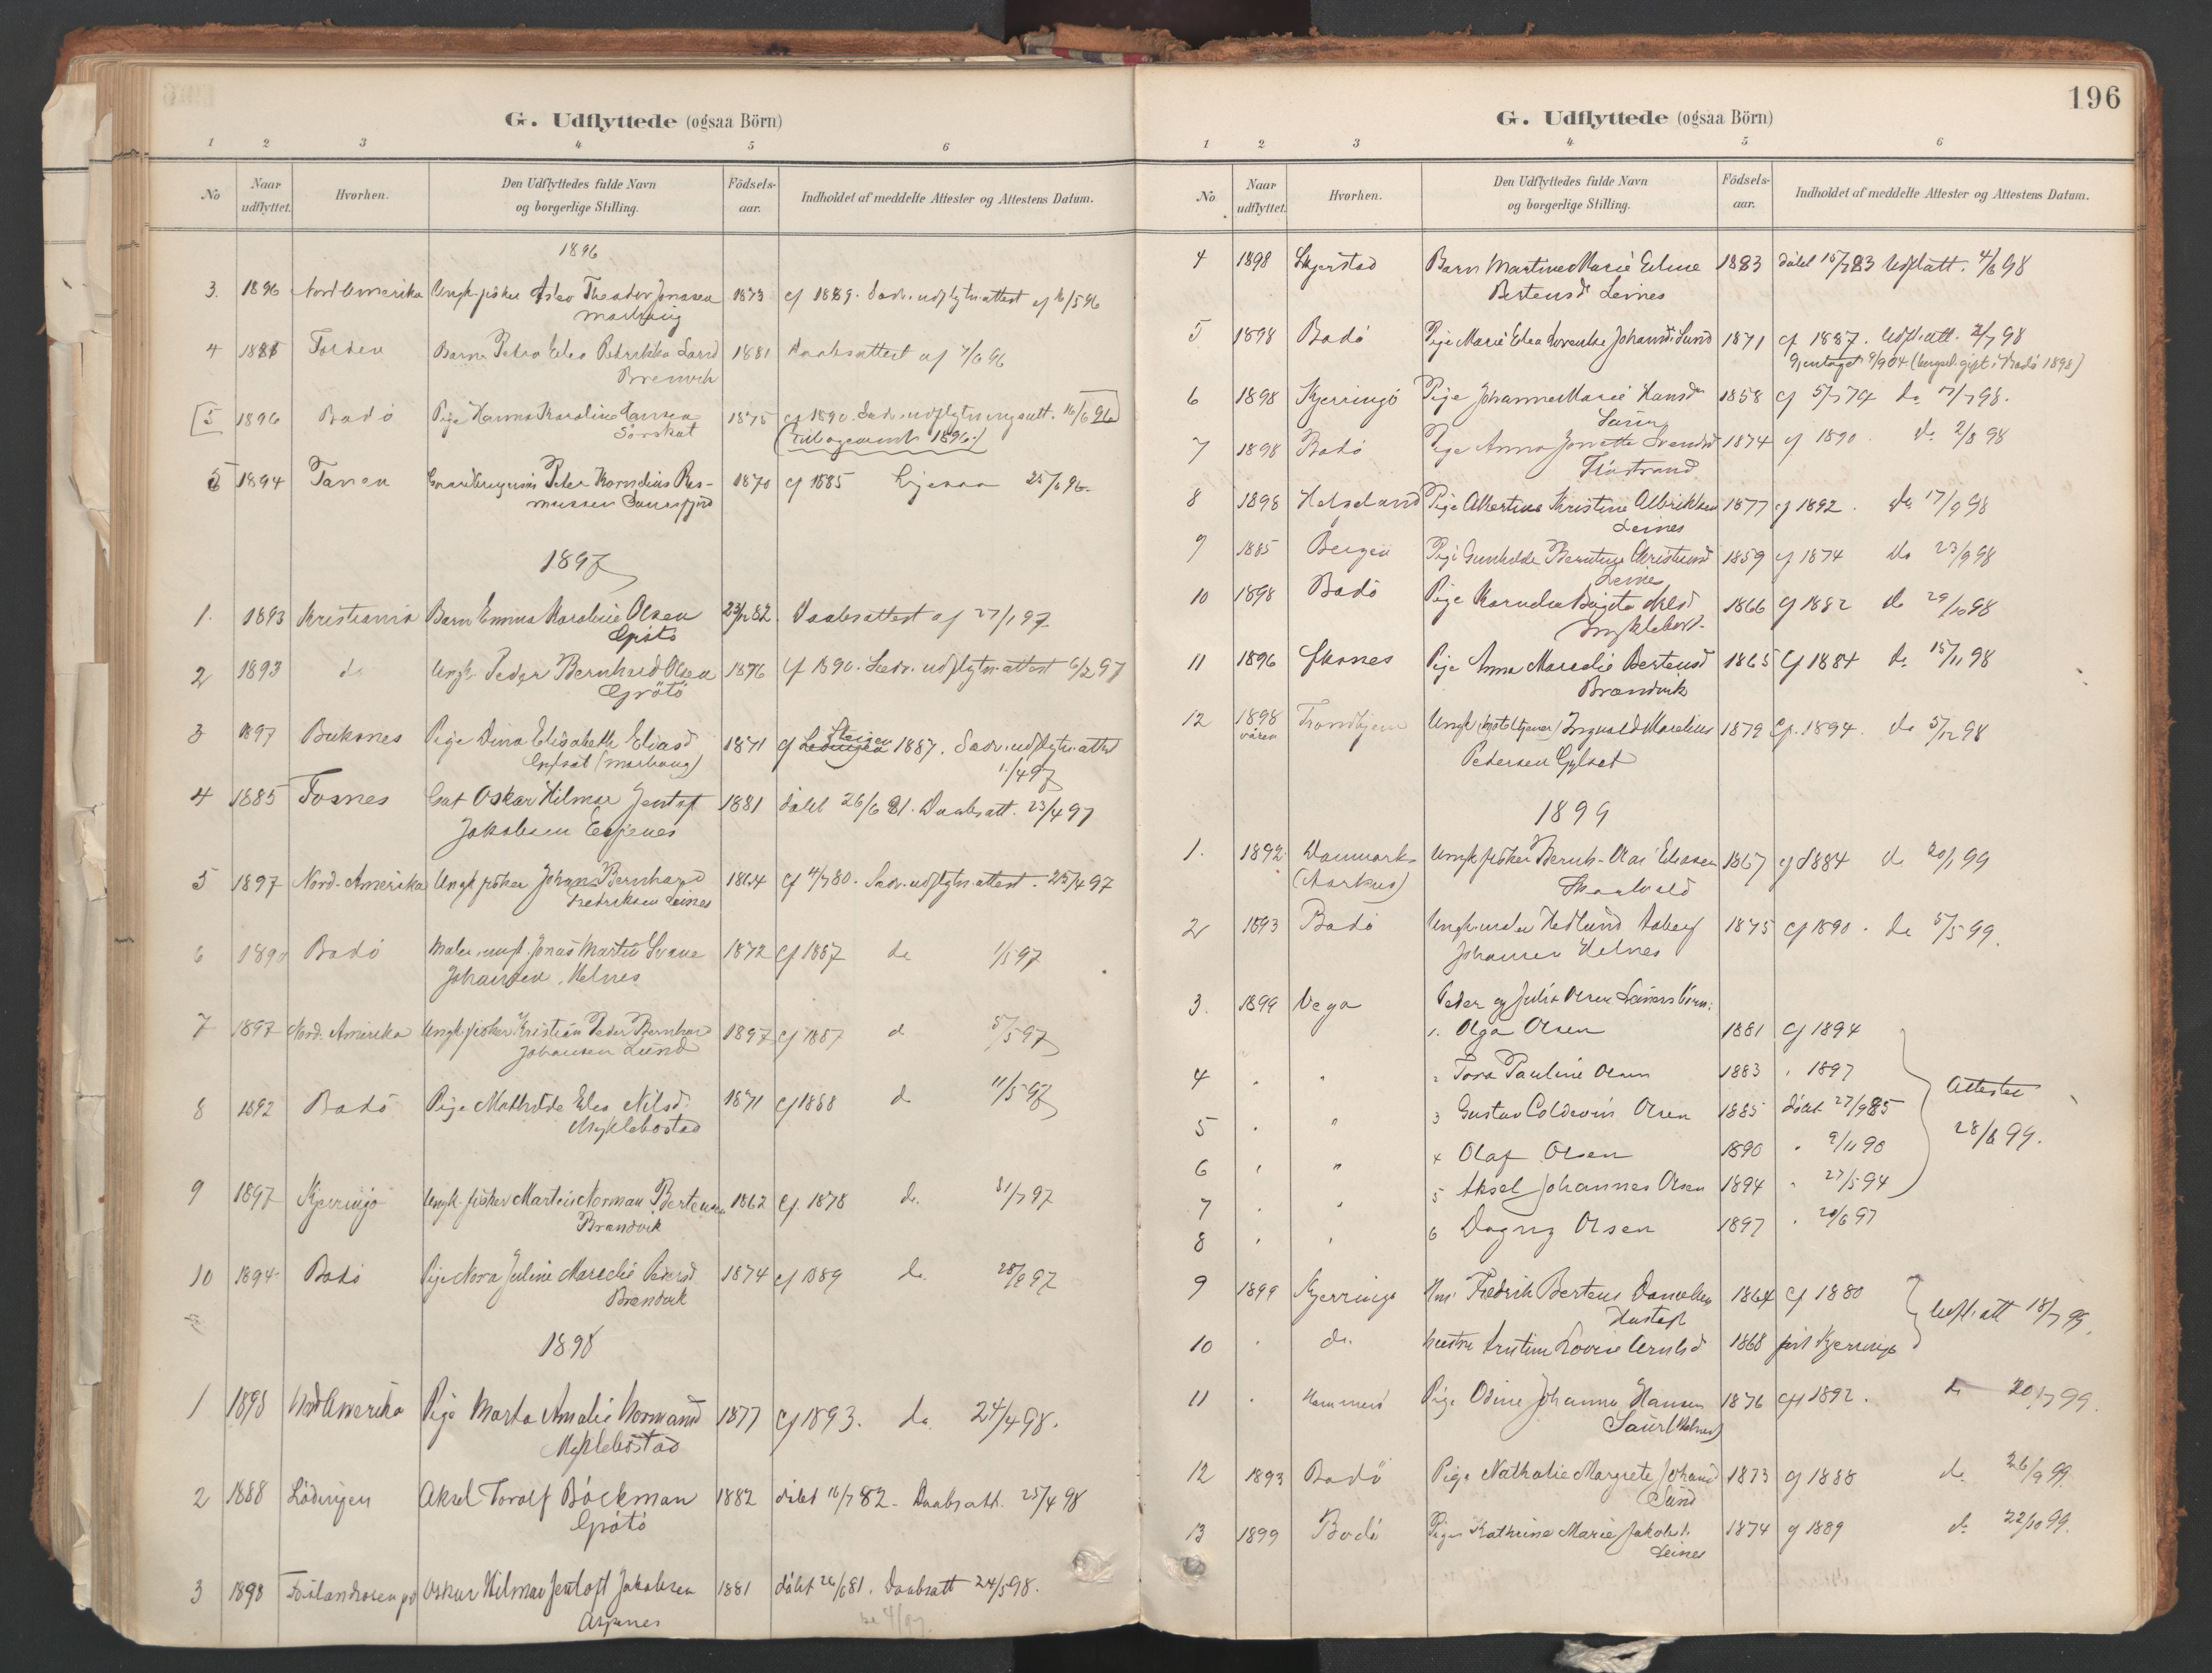 G. Udflyttede (ogsaa Börn)
1 2 3 4 5 6
No Naar udflyttet. Hvorhen. Den Udflyttedes fulde Navn og borgerlige Stilling. Födsels-aar. Indholdet af meddelte Attester og Attestens Datum.
1896
3. 1896 Nord Amerika Ungk. fisker Theodor Jonasen 1873 cf 1889. Sædv. udflytn. attest af 16/5 96
4 Petra Elea Petrikka 1881 Daabsattest af 7/6 96
[5 1896 Bodö Pige Hanna Karoline Hansen 1875 cf 1890. Sædv. udflytningsatt. 16/6 96]
Sörskat (Tilbagesendt 1896.)
5 1894 Tanen Peter Kornelius Ras- 1870 cf 1885 25/6 96.
mussen
1897
1. 1893 Kristiania Barn Emma Karoline Olsen 23/12 82. Daabsattest af 27/1 97
Grötö
2 1893 do Ungk. Peder Bernhard Olsen 1876 cf 1890. Sædv. udflytn. attest 6/2 97
Grötö
3 1897 Buksnes Pige Dina Elisabeth Eliasd 1871 cf Steigen 1887. Sædv. udflytn. attest
(Marhaug) 1/4 97
4 1885 Fosnes Gut Oskar Hilmar Jentoft 1881 döbt 26/6 81. Daabsatt. 23/4 97
Jakobsen
5 1897 Nord-Amerika Ungk fisker Johan Bernhard 1864 cf 4/7 80. Sædv. udflytn. attest. 25/4 97
Fredriksen Leines
6 1890 Bodö Maler, ungk. Jonas Martin Svane 1872 cf 1887 do 1/5 97
Johansen, Helnes
7 1897 Nord-Amerika Ungk fisker Kristian Peder Bernhar 1897 cf 1887 do 5/5 97
Johansen Lund
8 1892 Bodö Pige Mathilde Elea Nilsd. 1871 cf 1888 do 11/5 97
Myklebostad
9 1897 Kjerringö Ungk. fisker Martin Norman Bertensen 1862 cf. 1878 do. 31/7 97
Brandvik
10 1894 Bodö Pige Nora Juline Marselie Pedersd. 1874 cf 1889 do. 28/8 97
Brandvik
1898
1 1898 Nord Amerika Pige Marta Amalie Normand 1877 cf 1893. do. 24/4 98.
Myklebostad
2 1888 Lödingen Aksel Torolf Böckman 1882 döbt 16/7 82. Daabsatt. 25/4 98
Grötö
3 1898 Oskar Hilmar Jentoft Jakobsen 1881 döbt 26/6 81. Daabsatt 24/5 98.
Aspenes se 4/97.
196
G. Udflyttede (ogsaa Börn)
1 2 3 4 5 6
No Naar udflyttet. Hvorhen. Den Udflyttedes fulde Navn og borgerlige Stilling. Födsels-aar. Indholdet af meddelte Attester og Attestens Datum.
4 1898 Skjerstad Barn Martine Marie Eline 1883 döbt 15/7 83 Udfl. att. 4/6 98
Bertensd. Leines
5 1898 Bodö Pige Marie Elea Lorentse Johansd. Lund 1871 cf 1887. Udfl. att. 2/7 98
Gjentaget 9/9 04 (gift i Bodö 1898)
6 1898 Kjerringö Pige Johanne Marie Hansd. 1858 cf 5/7 74 do 17/7 98.
7 1898 Bodö Pige Anna Jonette Svendsd 1874 cf 1890. do. 2/8 98
8 1898 Helgeland Pige Albertine Kristine Albriktsen 1877 cf 1892. do 17/9 98
Leines
9 1885 Bergen Pige Gunhilde Berntine Christensd 1859 cf 1874 do 23/9 98
Leines
10 1898 Bodö Pige Kornelia Birgite 1866 cf 1882 do 29/10 98
Myklebost.
11 1896 Öksnes Pige Anna Marselie Bertensd 1865 cf 1884 do 15/11 98
Brandvik
12 1898 Trondhjem Ungk. (hoteltjener) Ingvald Marelius 1879 cf. 1894. do 5/12 98
våren Pedersen Gylset
1899
1. 1892 Danmark Ungk fisker Bernh. Olai Eliasen 1867 cf 1884 do 20/1 99
(Aarhus)
2 1893 Bodö Ungk. maler Hedlund 1875 cf 1890. do 5/5 99.
Johansen Helnes
3. 1899 Vega Peder og Julia Olsen Leines börn:
1. Olga Olsen 1881 cf 1894
4 " " 2 Tora Pauline Olsen 1883 " 1897
5 " " 3 Gustav Coldevin Olsen 1885 döbt 27/9 85 Attester
6 " " 4 Olaf Olsen 1890 " 9/11 90 28/6 99.
7 " " 5 Aksel Johannes Olsen 1894 " 27/5 94
8 " " 6 Dagny Olsen 1897 " 20/6 97
9 1899 Kjerringö Fredrik Bertens Danielsen 1864 cf 1880 Udfl. att 18/7 99.
10 " do. Hustru Lovise 1868 Kjerringö
11 " Hammerö Pige Odine Johanna Hansen 1876 cf 1892. do 20/7 99.
(Helnes)
12 1893 Bodö Pige Nathalie Margrete Johansd 1873 cf 1888 do 26/9 99.
Lund
13 1899 Bodö Pige Kathrine Marie Jakobsd. 1874 cf 1889 do 22/10 99.
Leines